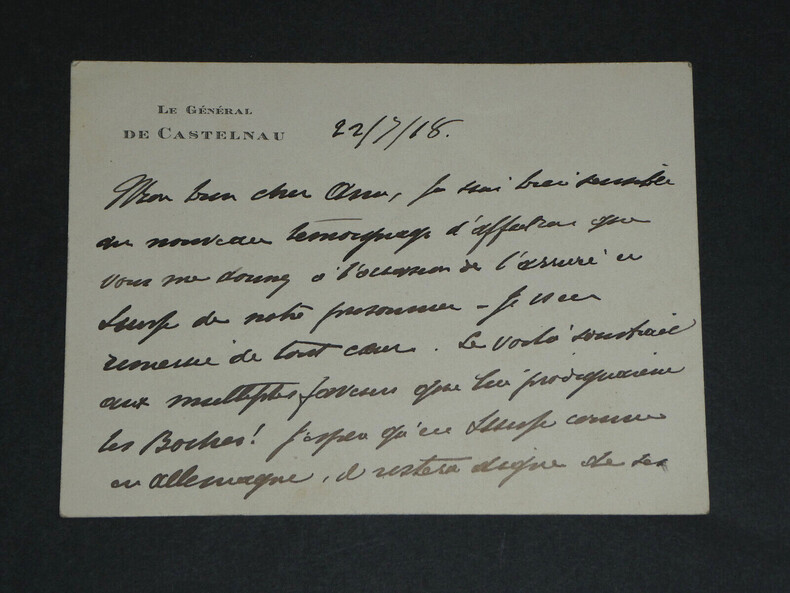 LE GÉNÉRAL
DE CASTELNAU
22/7/18.
Mon bien cher Ami, je suis bien sensible
au nouveau témoignage d'affection que
vous me donnez à l'occasion de l'arrivée en
Suisse de notre prisonnier - Je vous en
remercie de tout cœur. Le voilà soustrait
aux multiples faveurs que lui prodiguaient
les Boches! J'espère qu'en Suisse comme
en Allemagne, il restera digne de ses